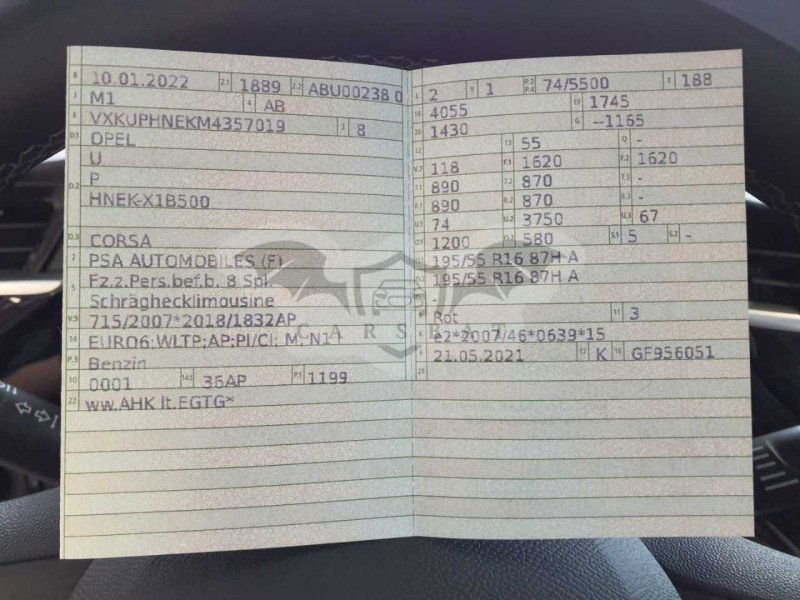 B 10.01.2022 2.1 1889 2.2 ABU00238 0
J M1 4 AB
E VXKUPHNEKM4357019 3 8
D.1 OPEL
U
D.2 P
HNEK-X1B500
D.3 CORSA
2 PSA AUTOMOBILES (F)
5 Fz.z.Pers.bef.b. 8 Spl
Schräghecklimousine
V.9 715/2007*2018/1832AP
14 EURO6;WLTP;AP;PI/CI; M, N1 I
P.3 Benzin
10 0001 14.1 36AP P.1 1199
22 ww.AHK lt.EGTG*
L 2 9 1 P.2 P.4 74/5500 T 188
18 4055 19 1745
20 1430 G --1165
12 13 55 Q -
V.7 118 F.1 1620 F.2 1620
7.1 890 7.2 870 7.3 -
8.1 890 8.2 870 8.3 -
U.1 74 U.2 3750 U.3 67
O.1 1200 O.2 580 S.1 5 S.2 -
195/55 R16 87H A
195/55 R16 87H A
R Rot 11 3
K e2*2007/46*0639*15
6 21.05.2021 17 K 16 GF956051
21